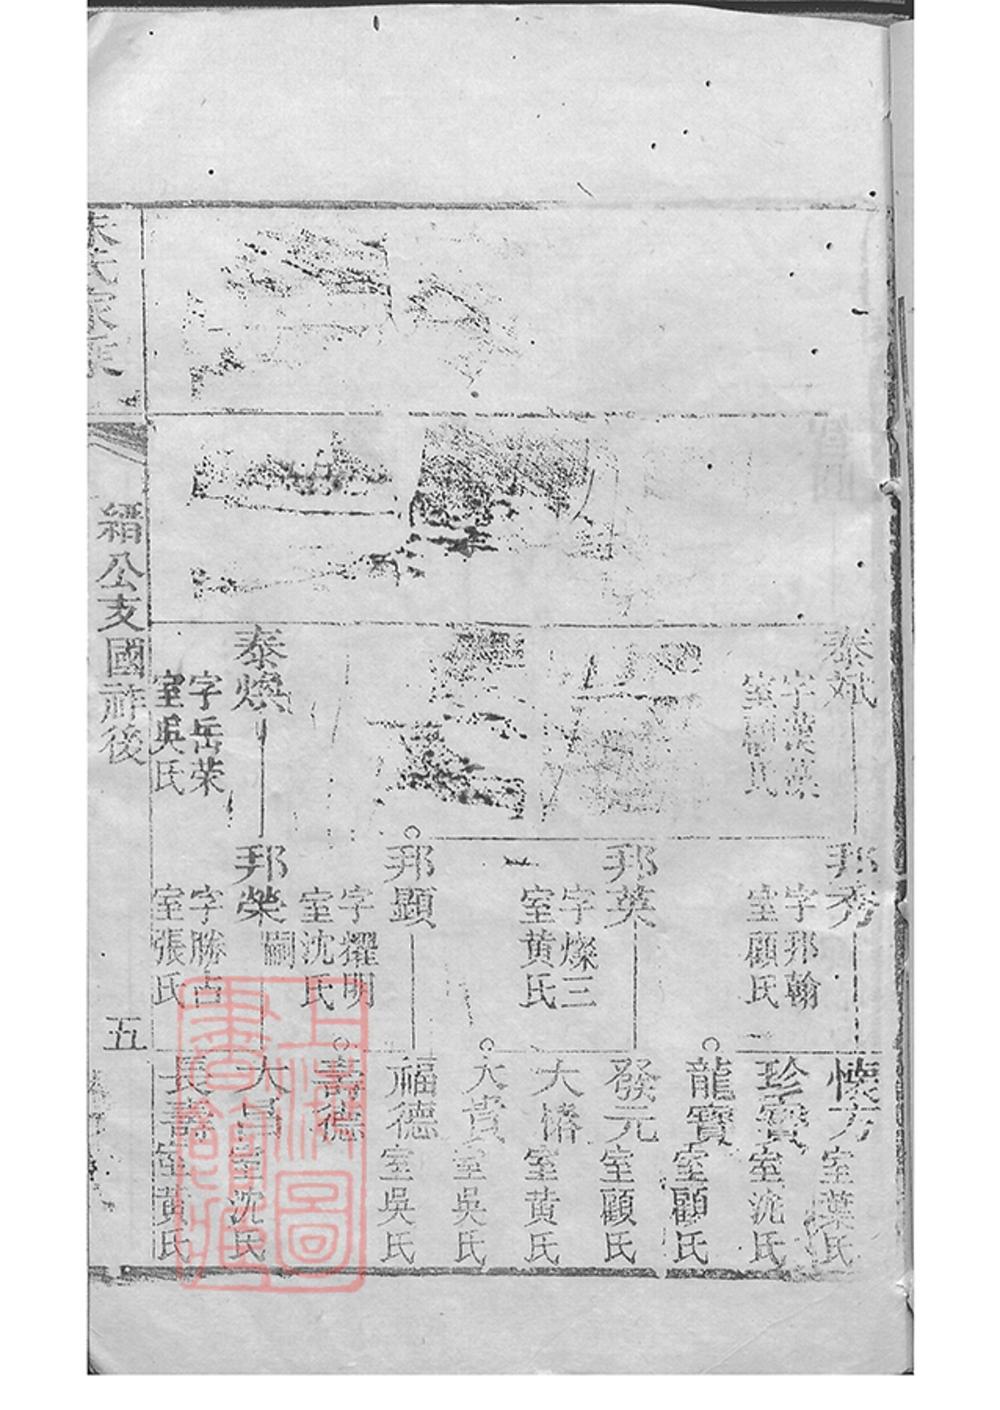 泰斌
字漢葉
室顧氏
泰煥
字岳荣
室吳氏
邦秀
字邦翰
室顧氏
邦英
字燦三
室黄氏
邦顯
字耀明
室沈氏
邦榮嗣
字勝占
室張氏
懷方 室葉氏
珍寶 室沈氏
龍寶 室顧氏
發元 室顧氏
大椿 室黄氏
大貴 室吳氏
福德 室吳氏
壽德
大昌 室沈氏
長壽 室黄氏
縉公支國祚後
五
上海圖書館藏